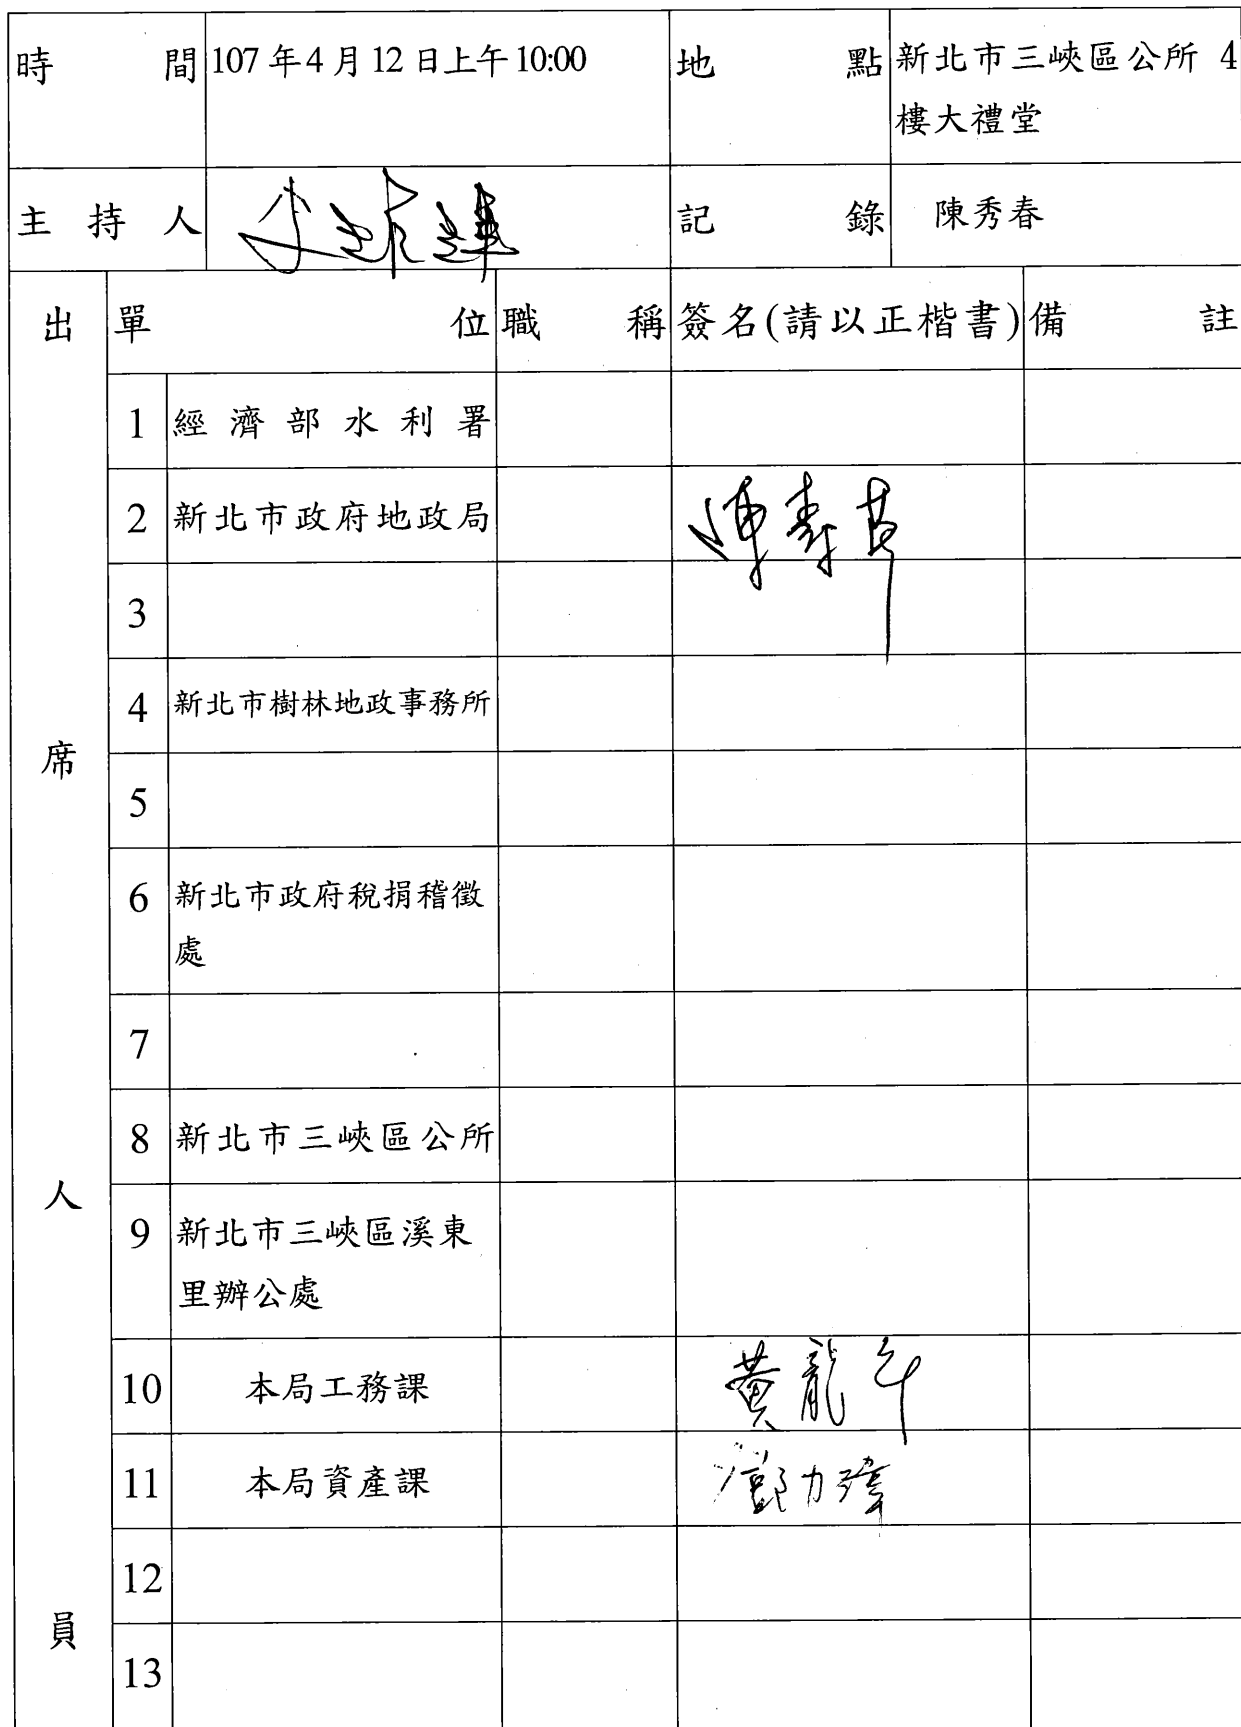 時間 107年4月12日上午10:00 地點 新北市三峽區公所 4
樓大禮堂
主持人 記錄 陳秀春
出席人員
單位 職稱 簽名(請以正楷書) 備註
1 經濟部水利署
2 新北市政府地政局
3
4 新北市樹林地政事務所
5
6 新北市政府稅捐稽徵
處
7
8 新北市三峽區公所
9 新北市三峽區溪東
里辦公處
10 本局工務課 黃龍
11 本局資產課 鄧力瑋
12
13